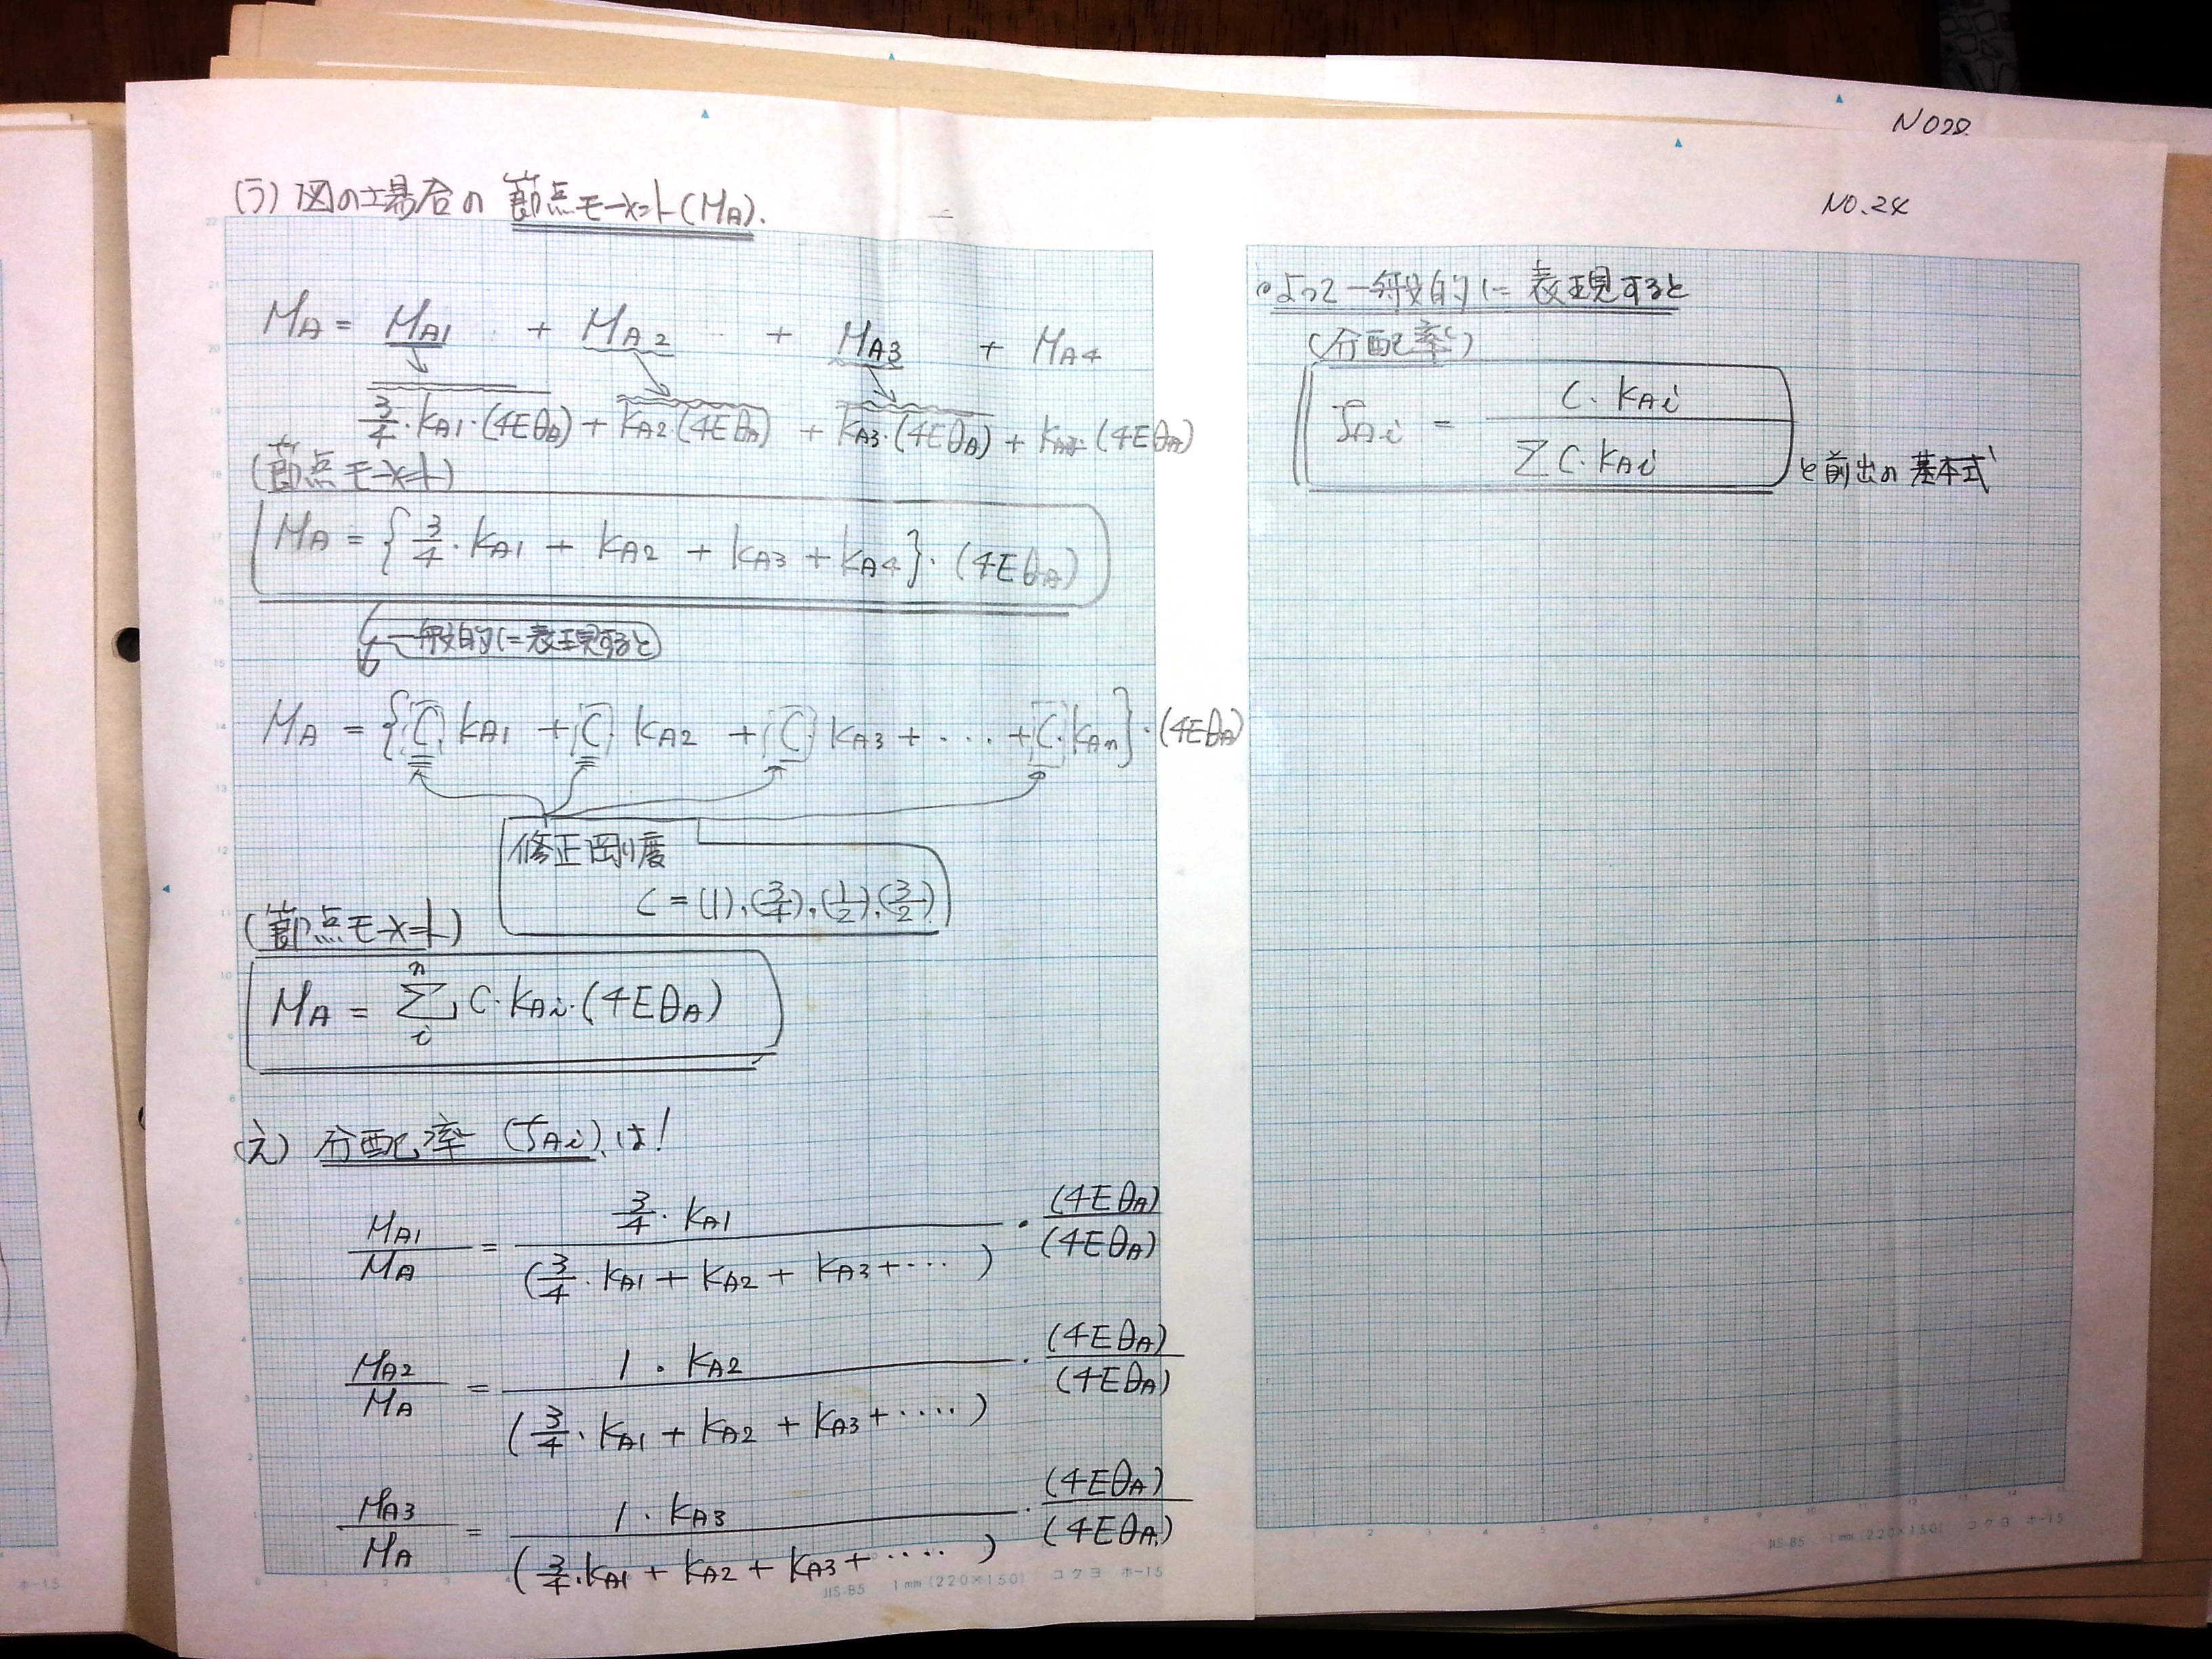 (う) 図の場合の 節点モーメント(MA).
MA = MA1 + MA2 + MA3 + MA4
3/4・KA1・(4EθA) + KA2(4EθA) + KA3・(4EθA) + KA4・(4EθA)
(節点モーメント)
MA = {3/4・KA1 + KA2 + KA3 + KA4}・(4EθA)
一般的に表現すると
MA = {C KA1 + C KA2 + C KA3 + ・・・ + C・KAn}・(4EθA)
修正剛度
C = (1), (3/4), (1/2), (3/2)
(節点モーメント)
n
MA = Σ C・KAi・(4EθA)
i
(え) 分配率 (fAi) は!
MA1/MA = 3/4・KA1 / (3/4・KA1 + KA2 + KA3 + ・・・)・(4EθA)/(4EθA)
MA2/MA = 1・KA2 / (3/4・KA1 + KA2 + KA3 + ・・・・)・(4EθA)/(4EθA)
MA3/MA = 1・KA3 / (3/4・KA1 + KA2 + KA3 + ・・・・・)・(4EθA)/(4EθA)
JIS-B5 1mm (220×150) コクヨ ホ-15
NO.24
よって一般的に表現すると
(分配率)
fAi = C・KAi / ΣC・KAi
と前出の基本式
JIS-B5 1mm (220×150) コクヨ ホ-15
ホ-15